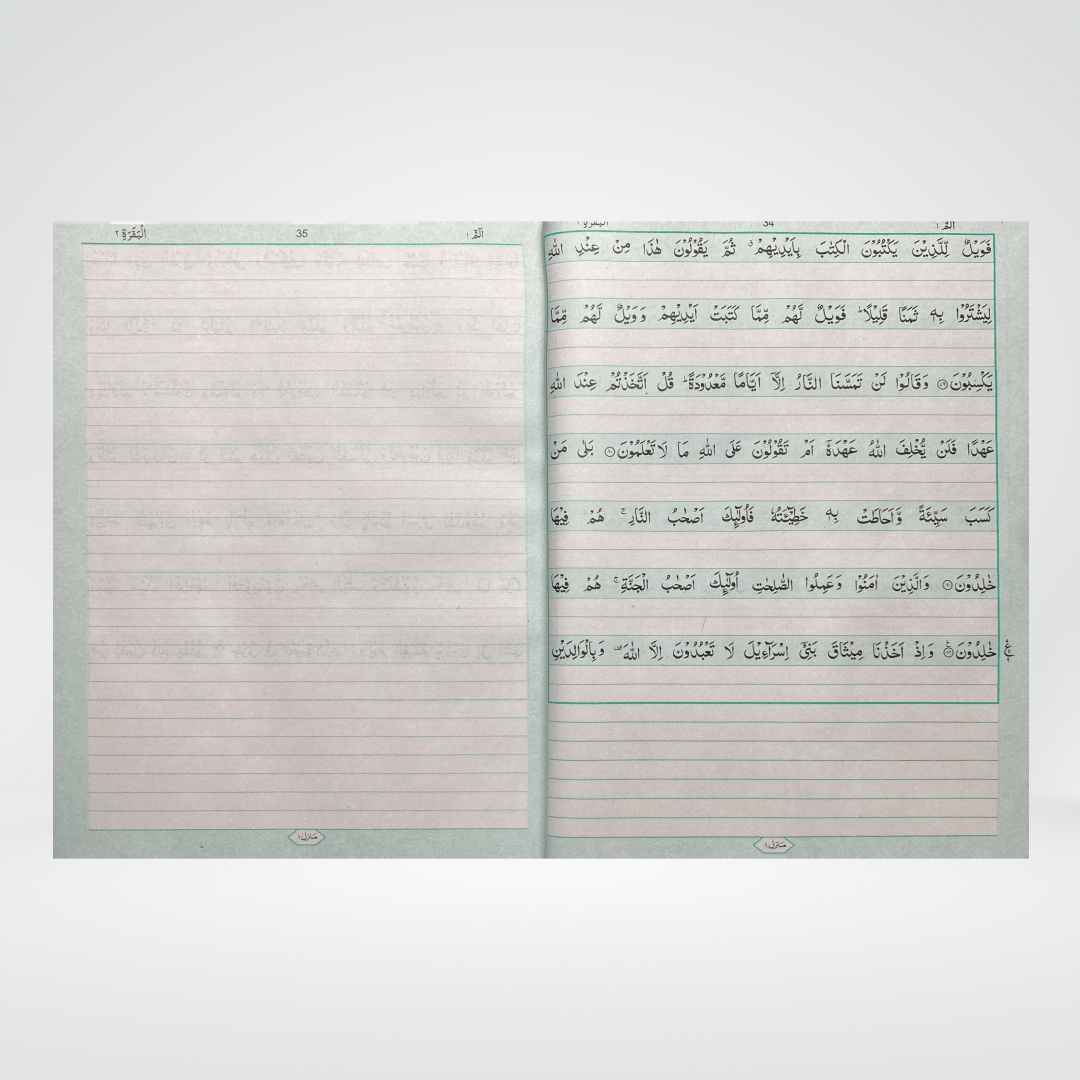 الٓمّٓ ١ 34 الْبَقَرَة ٢
فَوَيْلٌ لِّلَّذِيْنَ يَكْتُبُوْنَ الْكِتٰبَ بِاَيْدِيْهِمْ ۗ ثُمَّ يَقُوْلُوْنَ هٰذَا مِنْ عِنْدِ اللّٰهِ
لِيَشْتَرُوْا بِهٖ ثَمَنًا قَلِيْلًا ؕ فَوَيْلٌ لَّهُمْ مِّمَّا كَتَبَتْ اَيْدِيْهِمْ وَ وَيْلٌ لَّهُمْ مِّمَّا
يَكْسِبُوْنَ ﴿۷۹﴾ وَقَالُوْا لَنْ تَمَسَّنَا النَّارُ اِلَّآ اَيَّامًا مَّعْدُوْدَةً ؕ قُلْ اَتَّخَذْتُمْ عِنْدَ اللّٰهِ
عَهْدًا فَلَنْ يُّخْلِفَ اللّٰهُ عَهْدَهٗٓ اَمْ تَقُوْلُوْنَ عَلَى اللّٰهِ مَا لَا تَعْلَمُوْنَ ﴿۸۰﴾ بَلٰى مَنْ
كَسَبَ سَيِّئَةً وَّاَحَاطَتْ بِهٖ خَطِيْٓـَٔتُهٗ فَاُولٰٓئِكَ اَصْحٰبُ النَّارِ ۚ هُمْ فِيْهَا
خٰلِدُوْنَ ﴿۸۱﴾ وَالَّذِيْنَ اٰمَنُوْا وَعَمِلُوا الصّٰلِحٰتِ اُولٰٓئِكَ اَصْحٰبُ الْجَنَّةِ ۚ هُمْ فِيْهَا
خٰلِدُوْنَ ﴿۸۲﴾ وَاِذْ اَخَذْنَا مِيْثَاقَ بَنِيْٓ اِسْرَآءِيْلَ لَا تَعْبُدُوْنَ اِلَّا اللّٰهَ ۟ وَبِالْوَالِدَيْنِ
مَنزل ١
الٓمّٓ ١ 35 الْبَقَرَة ٢
مَنزل ١